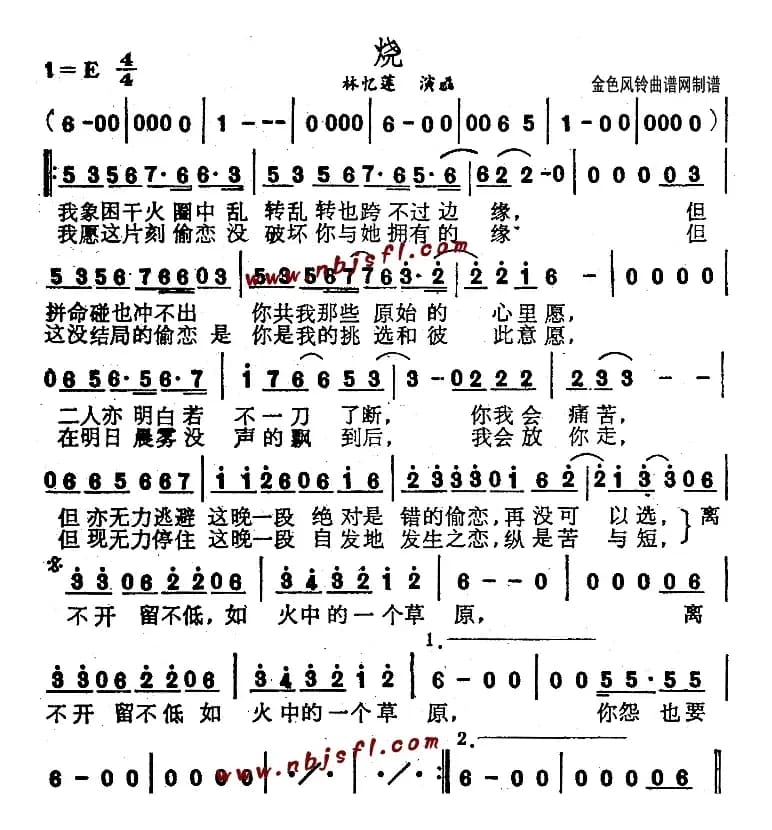 烧
1=E 4/4
林忆莲 演唱
金色风铃曲谱网制谱
(6-00|0000|1---|0000|6-00|0065|1-00|0000)
‖:53567·66·3|53567·65·6|622-0|00003
我象困干火圈中乱 转乱转也跨不过边 缘, 但
我愿这片刻偷恋没 破坏你与她拥有的 缘 但
535676603|5356776̇3·2|2216|0000
www.nbjsfl.com
拼命碰也冲不出 你共我那些 原始的 心里愿,
这没结局的偷恋 是 你是我的挑 选和彼 此意愿,
0656·56·7|176653|3-0222|233-
二人亦 明白若 不一刀 了断, 你我会 痛苦,
在明日 晨雾没 声的飘 到后, 我会放 你走,
06656667|11260606|2333016 2|213 3306
但亦无力逃避 这晚一段 绝对是 错的偷恋,再没可 以选, 离
但现无力停住 这晚一段 自发地 发生之恋,纵是苦 与短,
3306 2206|343212|6-00|00006
不开 留不低,如 火中的一个草 原, 离
1.
3306 2206|343212|6-00|0055·55
不开 留不低 如 火中的一个草 原, 你怨 也要
2.
6-00|0000|·/·|·/·:‖6-00|00006
www.nbjsfl.com